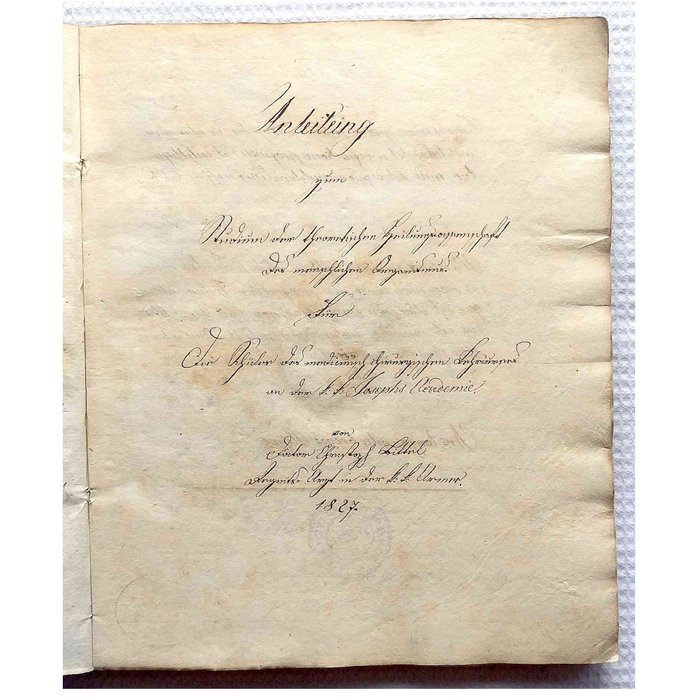 Anleitung
zum
Studium der theoretischen Heilungswissenschaft
des menschlichen Organismus.
Für
Die Schüler des medicinisch chirurgischen Lehrcurses
an der k. k. Josephs Academie.
von
Doctor Christoph
Regmts. Arzt in der k. k. Armee.
1827.